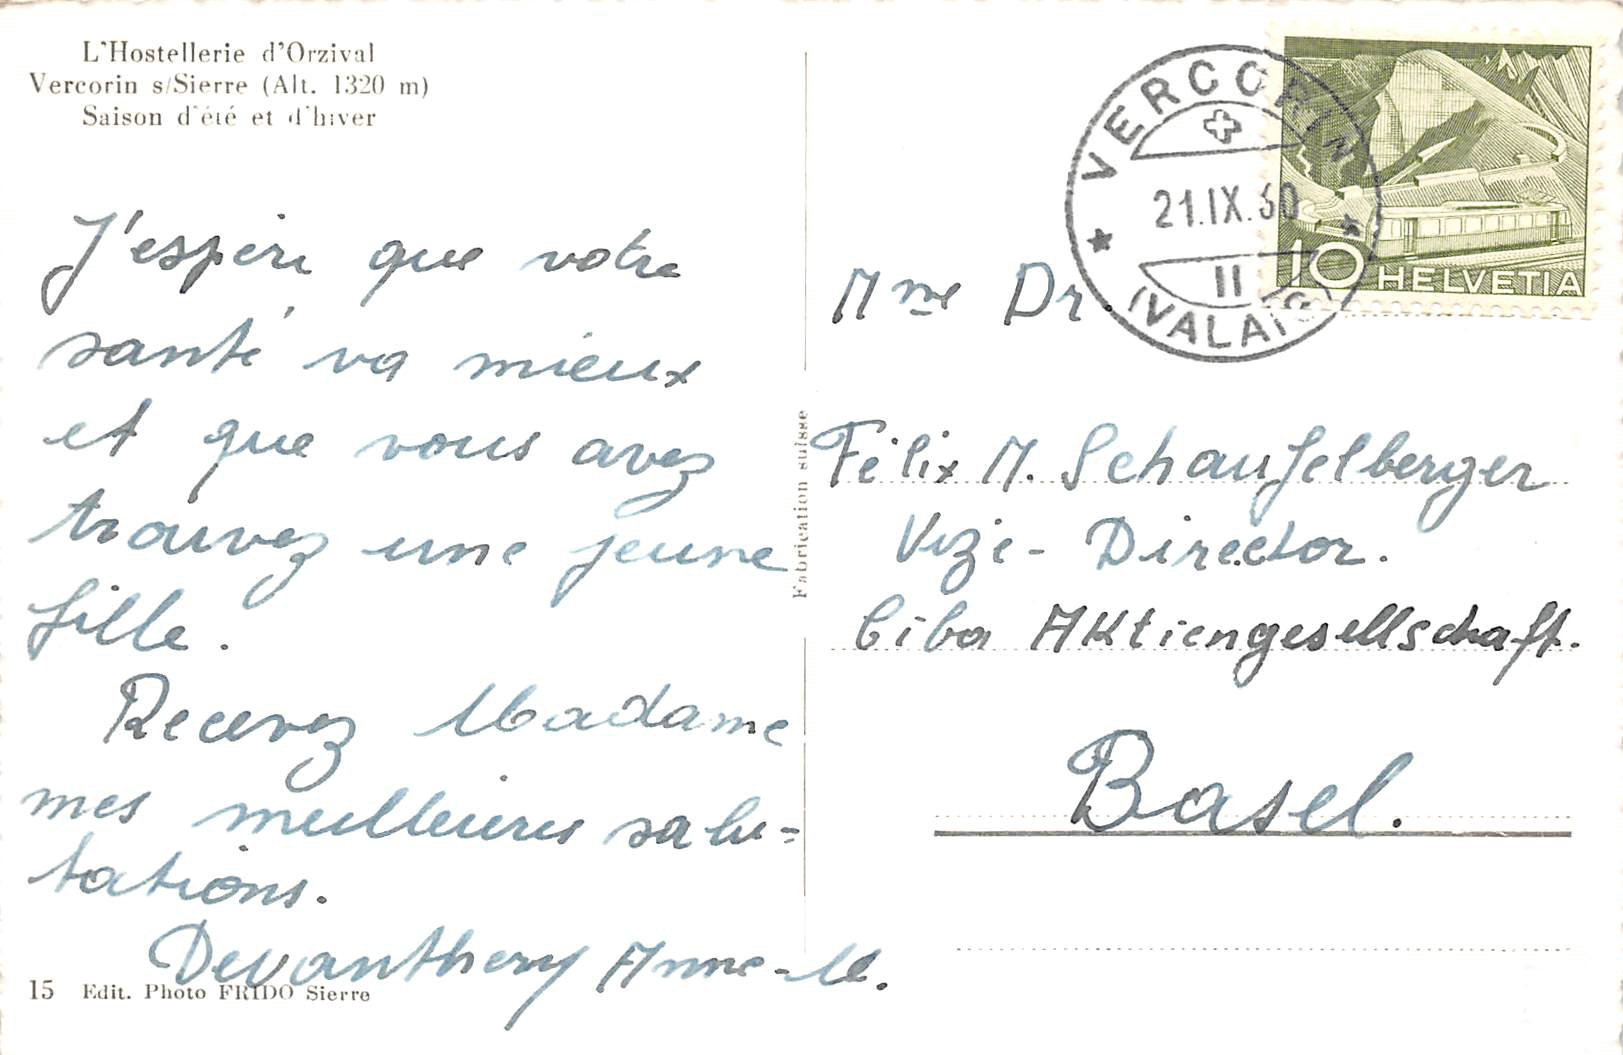 L'Hostellerie d'Orzival
Vercorin s/Sierre (Alt. 1320 m)
Saison d'été et d'hiver
J'espère que votre
santé va mieux
et que vous avez
trouvez une jeune
fille.
Recevez Madame
mes meilleures salu=
tations.
Devanthery Anne-M.
15 Edit. Photo FRIDO Sierre
Fabrication suisse
VERCORIN
21.IX.60
II
(VALAIS)
10 HELVETIA
Mme Dr.
Félix M. Schaufelberger
Vize-Director.
Ciba Aktiengesellschaft.
Basel.